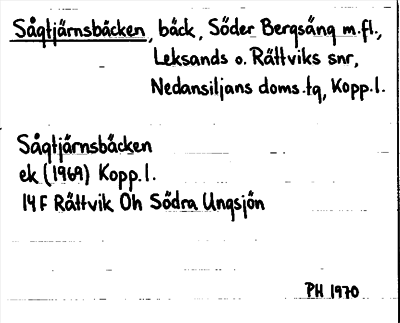 Sågtjärnsbäcken, bäck, Söder Bergsäng m.fl.,
Leksands o. Rättviks snr,
Nedansiljans doms.tg, Kopp.l.
Sågtjärnsbäcken
ek (1969) Kopp.l.
14 F Rättvik Oh Södra Ungsjön
PH 1970